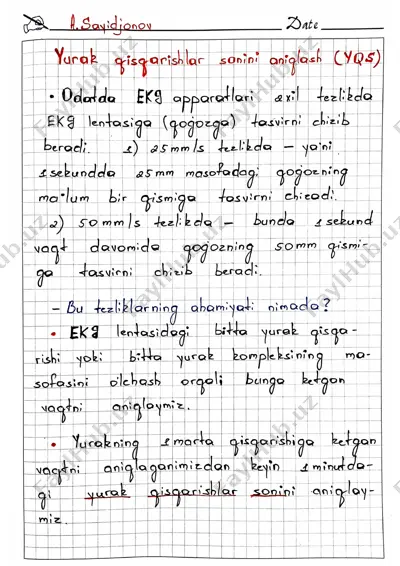 A.Sayidjonov Date
Yurak qisqarishlar sonini aniqlash (YQS)
• Odatda EKG apparatlari 2 xil tezlikda
EKG lentasiga (qog'ozga) tasvirni chizib
beradi. 1) 25mm/s tezlikda – ya'ni
1 sekundda 25mm masofadagi qog'ozning
ma'lum bir qismiga tasvirni chizadi.
2) 50mm/s tezlikda – bunda 1 sekund
vaqt davomida qog'ozning 50mm qismi-
ga tasvirni chizib beradi.
– Bu tezliklarning ahamiyati nimada?
• EKG lentasidagi bitta yurak qisqa-
rishi yoki bitta yurak kompleksining ma-
sofasini o'lchash orqali bunga ketgan
vaqtni aniqlaymiz.
• Yurakning 1 marta qisqarishiga ketgan
vaqtni aniqlaganimizdan keyin 1 minutda-
gi yurak qisqarishlar sonini aniqlay-
miz.
FaylHub.uz